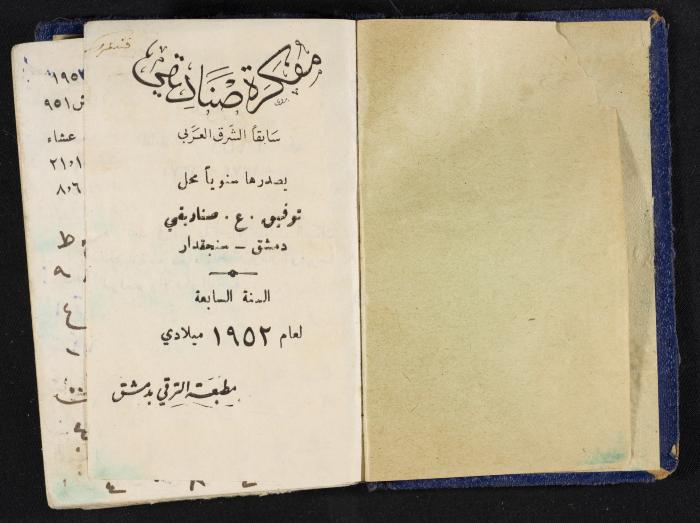 مفكرة صناديقي
سابقاً الشرق العربي
يصدرها سنوياً محل
توفيق . ع . صناديقي
دمشق - سنجقدار
السنة السابعة
لعام ١٩٥٢ ميلادي
مطبعة الترقي بدمشق
عشاء